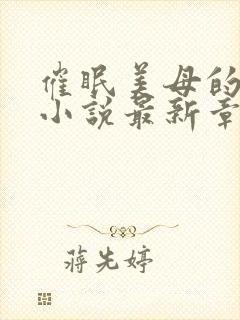 催眠美母的
小说最新章
蒋先婷